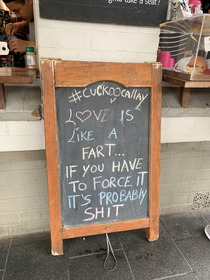 take a seat?
#CUCKOOCALLAY
LOVE IS
LIKE A
FART...
IF YOU HAVE
TO FORCE IT
IT'S PROBABLY
SHIT